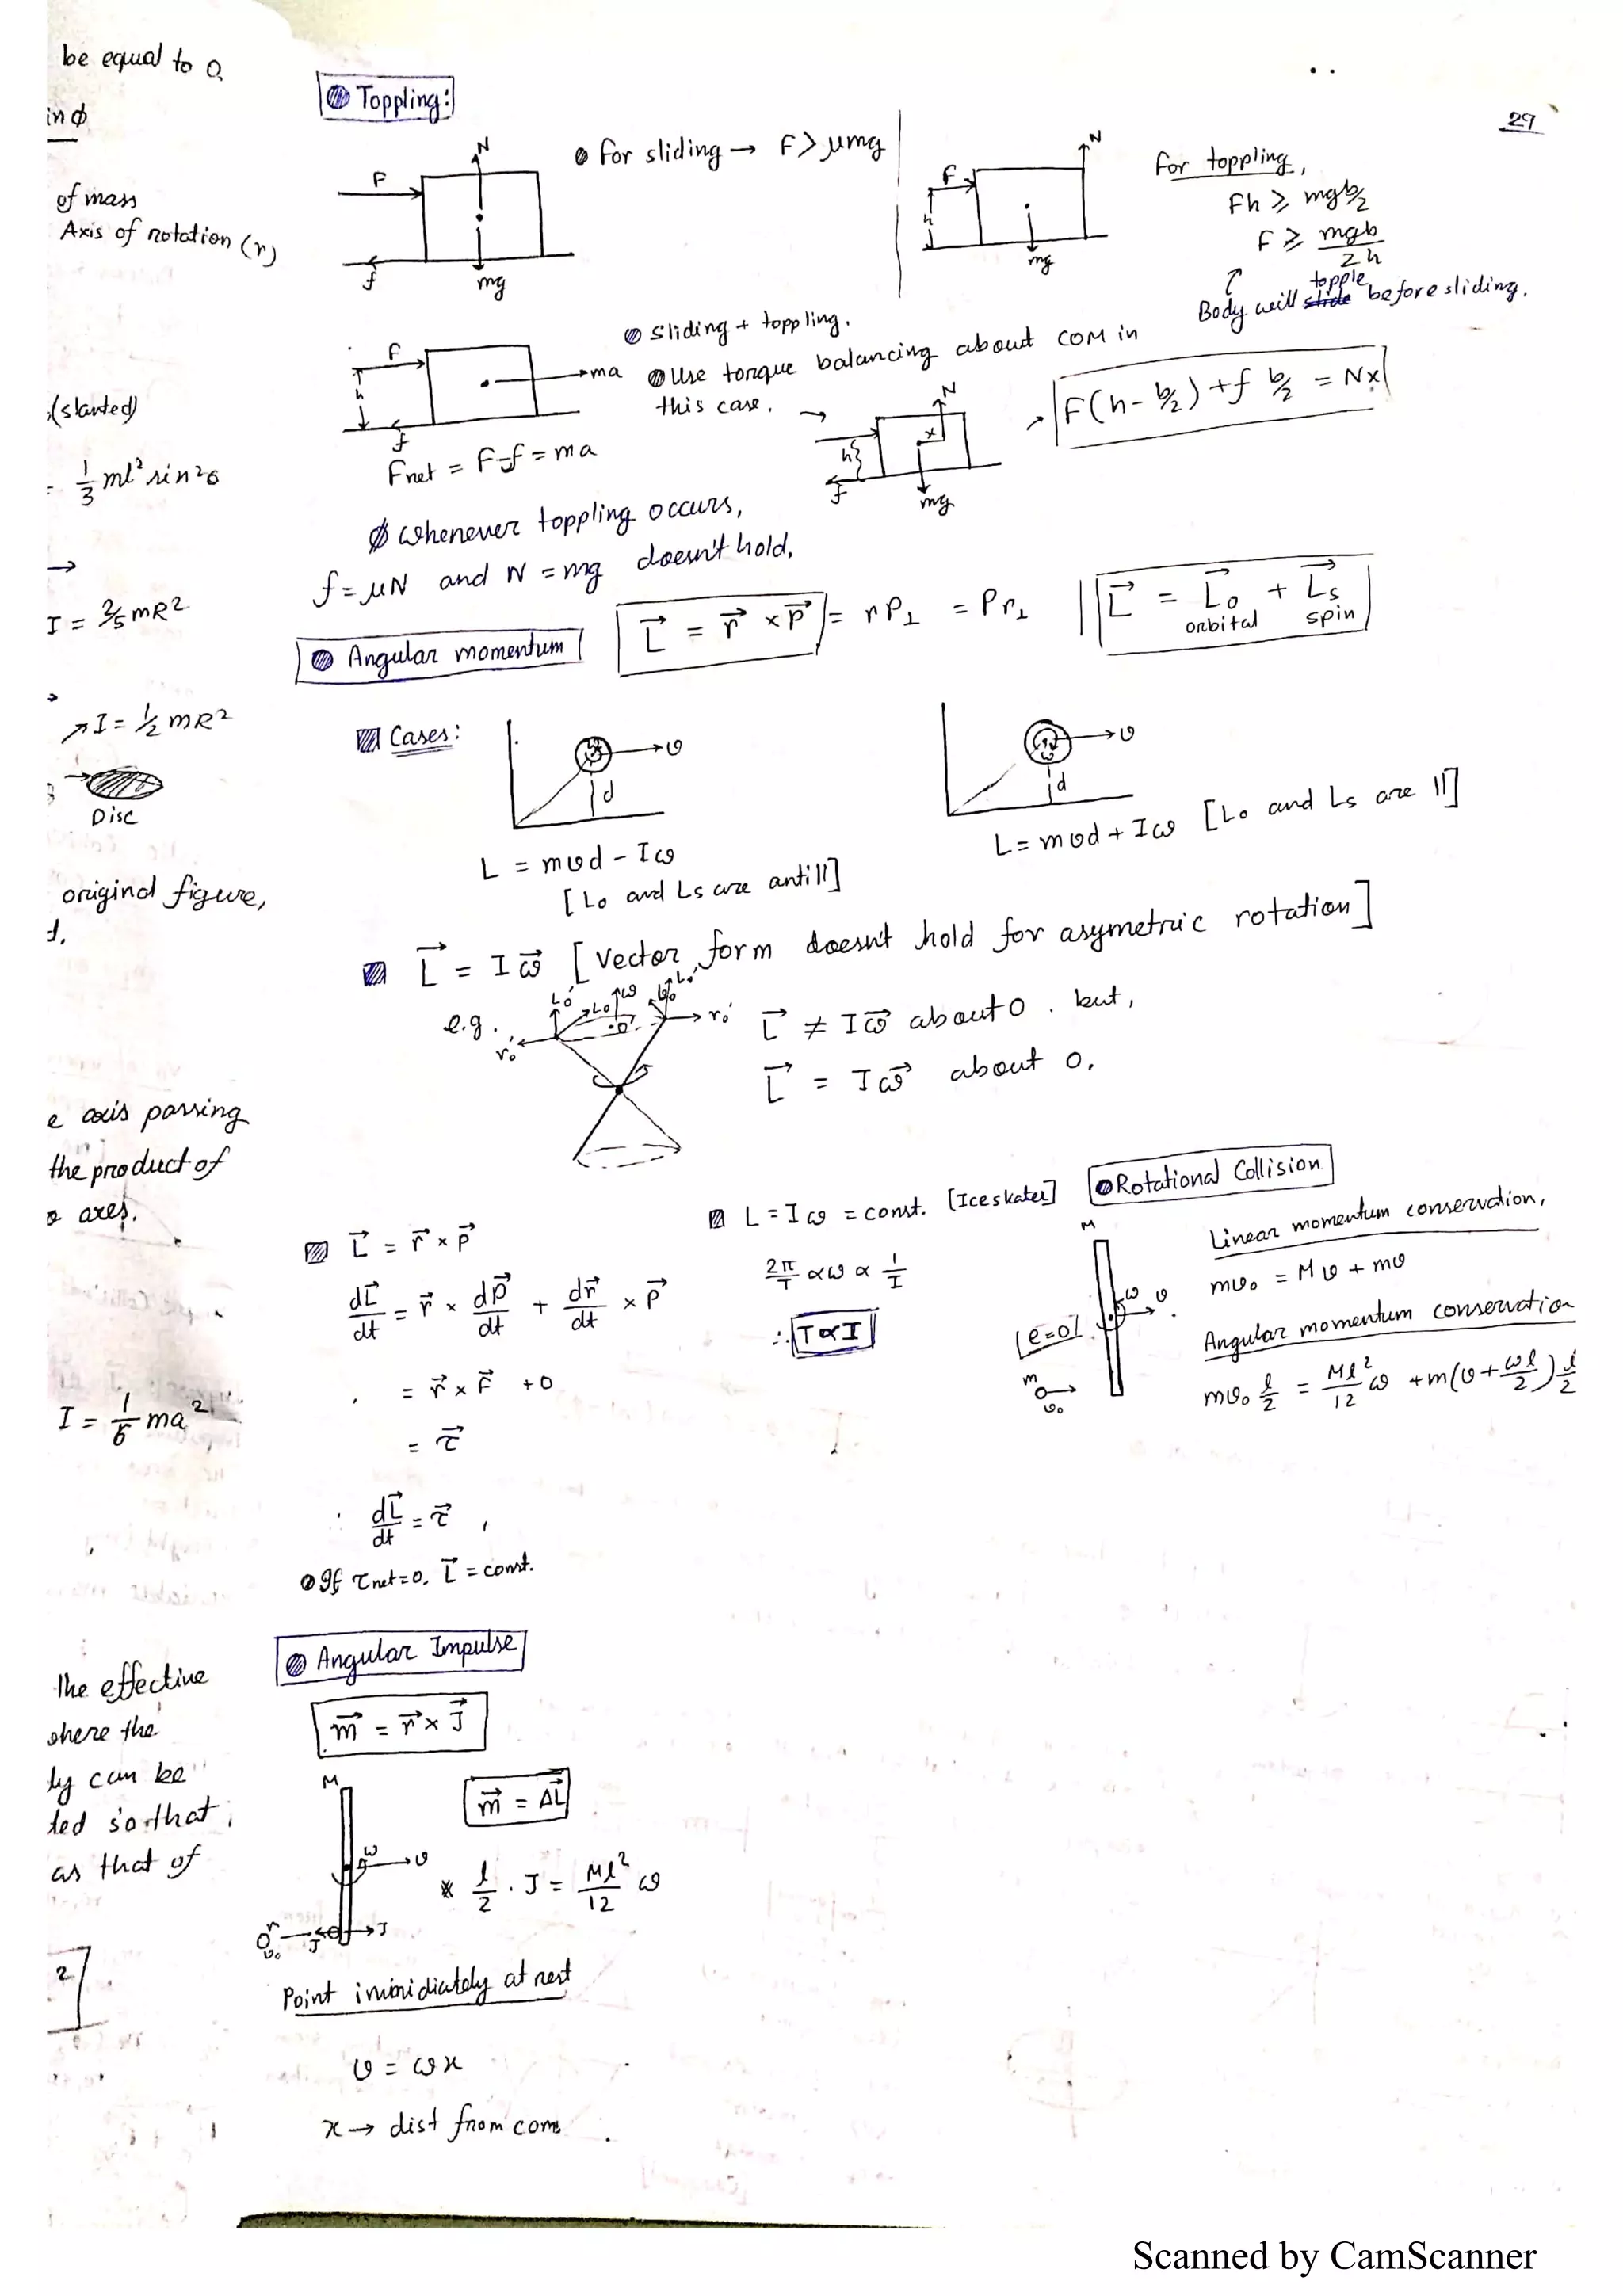 be equal to 0.
in φ
of mass
Axis of rotation (r)
(slanted)
= 1/3 ml² sin²θ
→
I = 2/5 mR²
→ I = 1/2 mR²
Disc
original figure,
d.
e axis passing
the product of
axes.
I = 1/6 ma²
the effective
where the
ly can be
ted so that
as that of
2
29
Toppling:
F
N
f
mg
For sliding → F > μmg
F
h
N
mg
For toppling,
Fh ≥ mg b/2
F ≥ mgb/2h
↑
Body will slide topple before sliding.
F
h
ma
f
Fnet = F-f = ma
Sliding + toppling.
Use torque balancing about COM in
this case. →
N
x
h
f
mg
→ F(h - b/2) + f b/2 = Nx
Whenever toppling occurs,
f = μN and N = mg doesn't hold.
Angular momentum
L⃗ = r⃗ × p⃗ = rP⊥ = Pr⊥
L⃗ = L⃗o + L⃗s
orbital spin
Cases:
ω
v
d
L = mvd - Iω
[Lo and Ls are anti ||]
ω
v
d
L = mvd + Iω [Lo and Ls are ||]
L⃗ = Iω⃗ [Vector form doesn't hold for asymetric rotation]
e.g.
Lo'
Lo
ω
Lo
Lo'
ro'
o'
ro'
L⃗ ≠ Iω⃗ about O . but,
L⃗ = Iω⃗ about o.
L⃗ = r⃗ × p⃗
dL⃗/dt = r⃗ × dp⃗/dt + dr⃗/dt × p⃗
= r⃗ × F⃗ + 0
= τ⃗
dL⃗/dt = τ⃗ ,
If τnet=0, L⃗ = const.
L = Iω = const. [Ice skater]
2π/T ∝ ω ∝ 1/I
∴ T ∝ I
Rotational Collision
M
ω
v
[e=0]
m
v₀
Linear momentum conservation,
mv₀ = Mv + mv
Angular momentum conservation
mv₀ l/2 = Ml²/12 ω + m(v + ωl/2) l/2
Angular Impulse
m⃗ = r⃗ × J⃗
m⃗ = ΔL⃗
M
ω
v
v₀
J
J
* l/2 . J = Ml²/12 ω
Point immidiately at rest
v = ωx
x → dist from com
Scanned by CamScanner